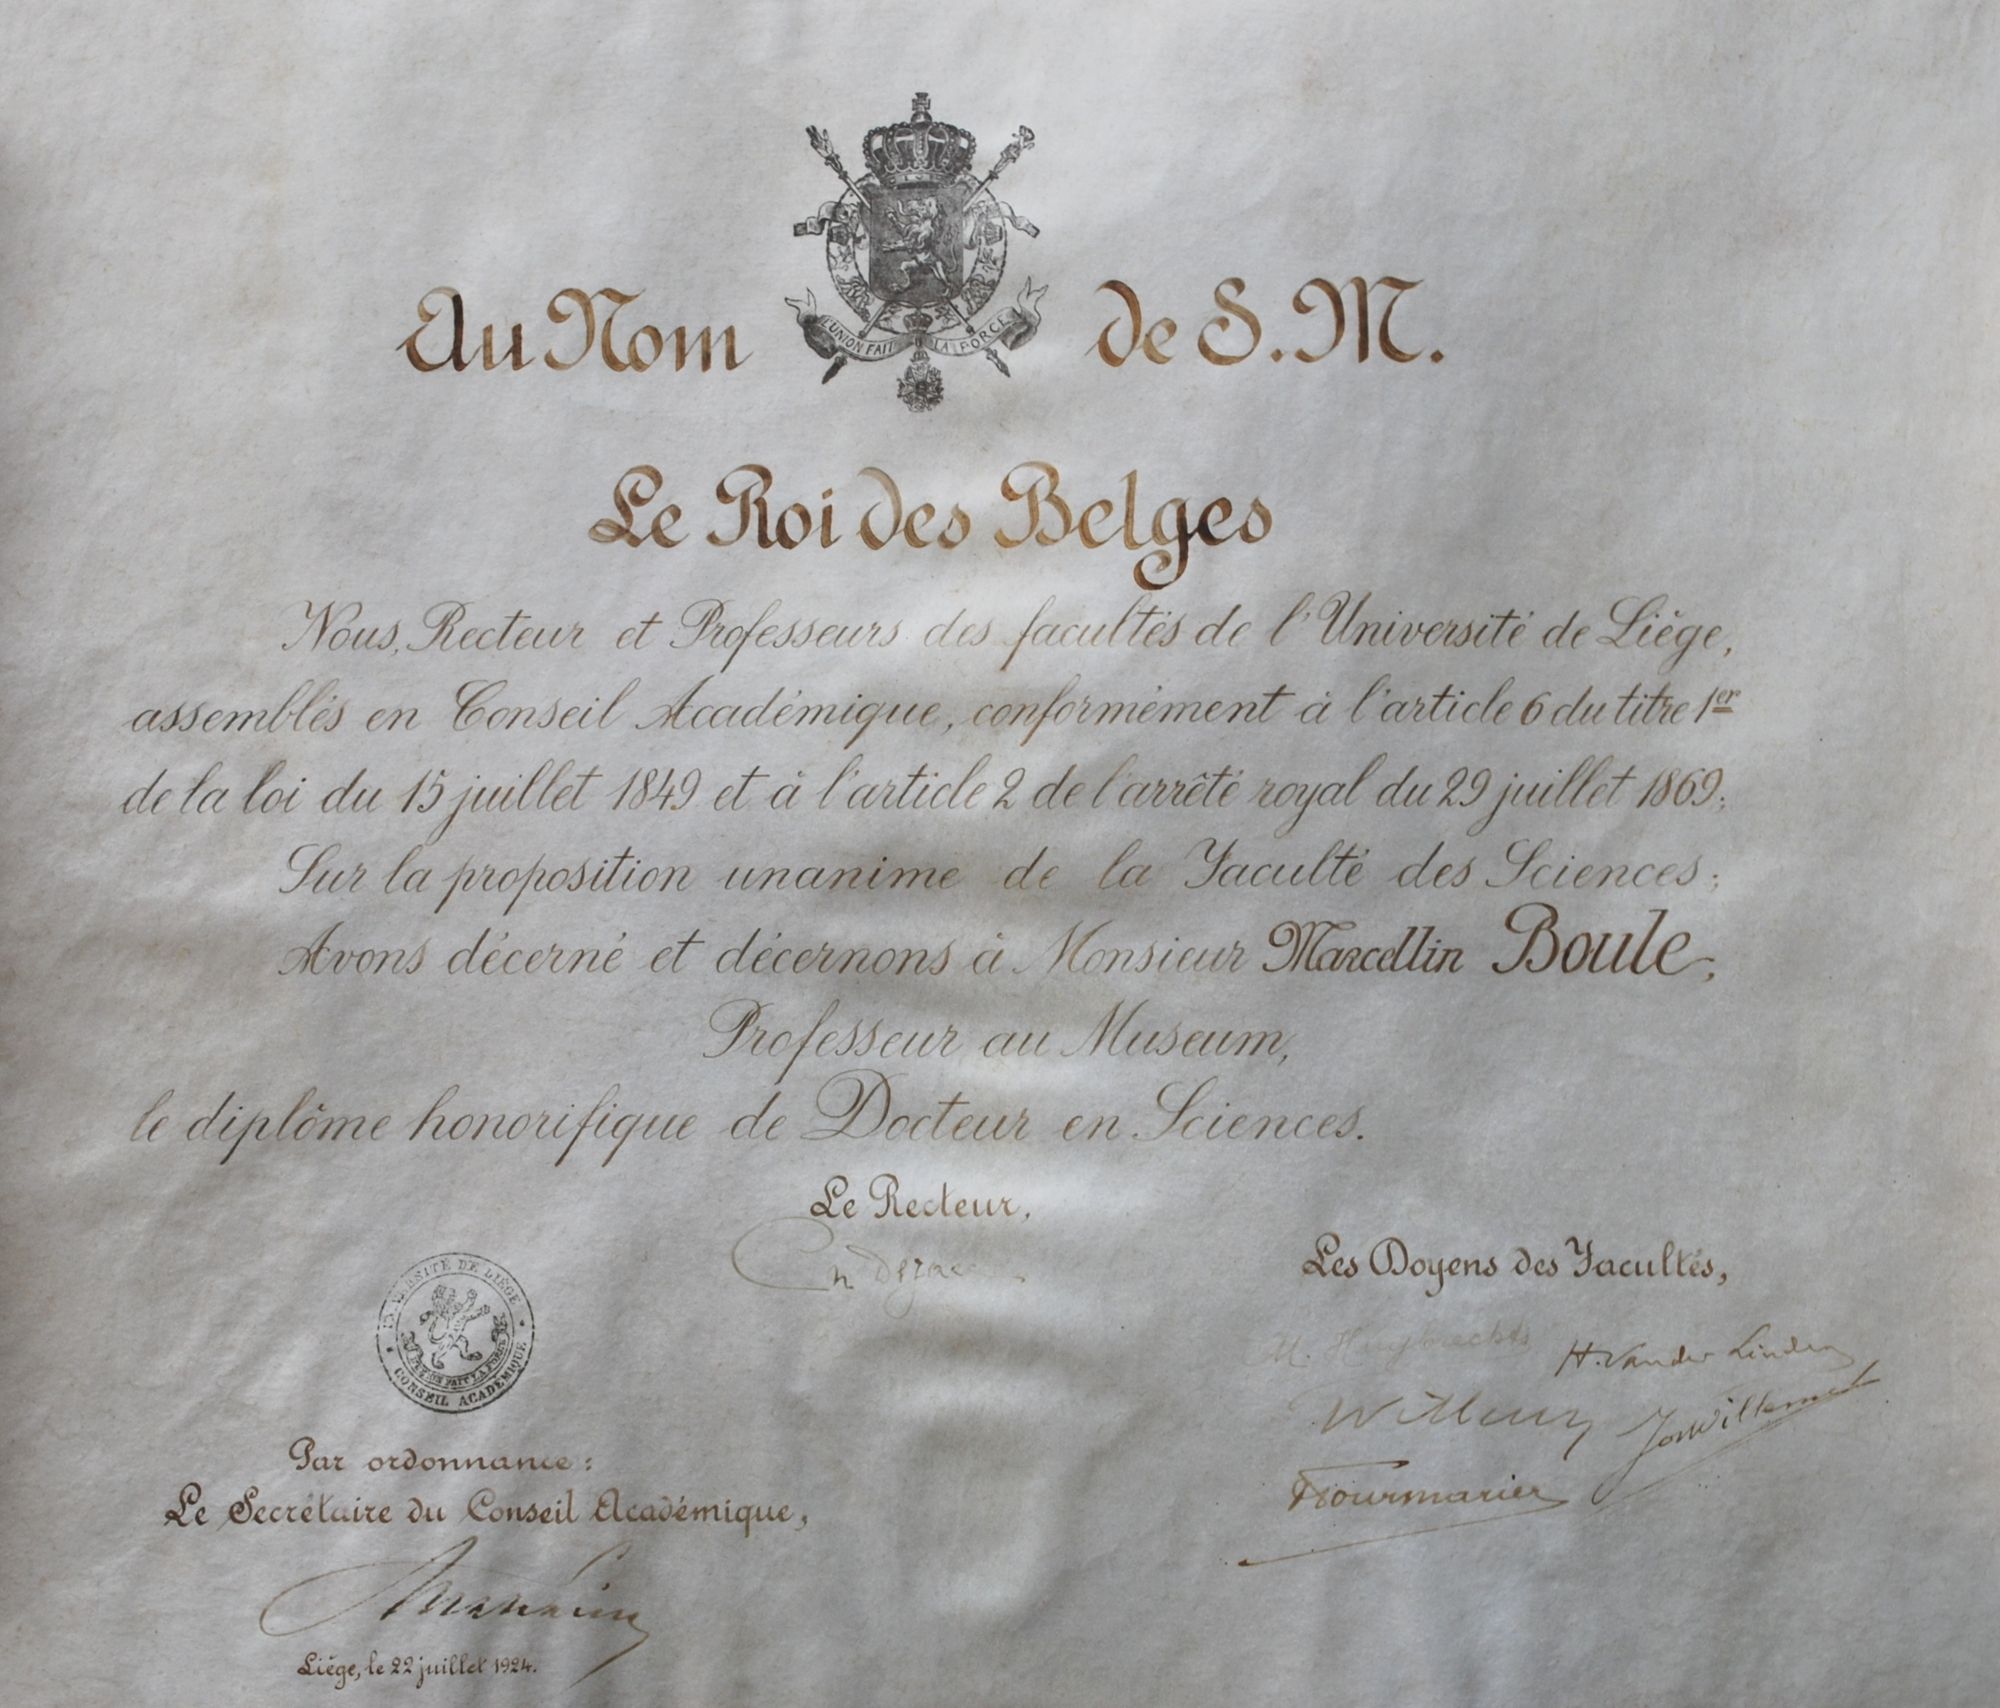 L'UNION FAIT LA FORCE
Au Nom de S. M.
Le Roi des Belges
Nous, Recteur et Professeurs des facultés de l'Université de Liége,
assemblés en Conseil Académique, conformément à l'article 6 du titre 1er
de la loi du 15 juillet 1849 et à l'article 2 de l'arrêté royal du 29 juillet 1869;
Sur la proposition unanime de la Faculté des Sciences;
Avons décerné et décernons à Monsieur Marcellin Boule,
Professeur au Museum,
le diplôme honorifique de Docteur en Sciences.
Le Recteur,
Les Doyens des Facultés,
M. Huybrechts
H. Vander Linden
Fourmarier
UNIVERSITÉ DE LIÉGE
L'UNION FAIT LA FORCE
CONSEIL ACADÉMIQUE
Par ordonnance:
Le Secrétaire du Conseil Académique,
Liége, le 22 juillet 1924.